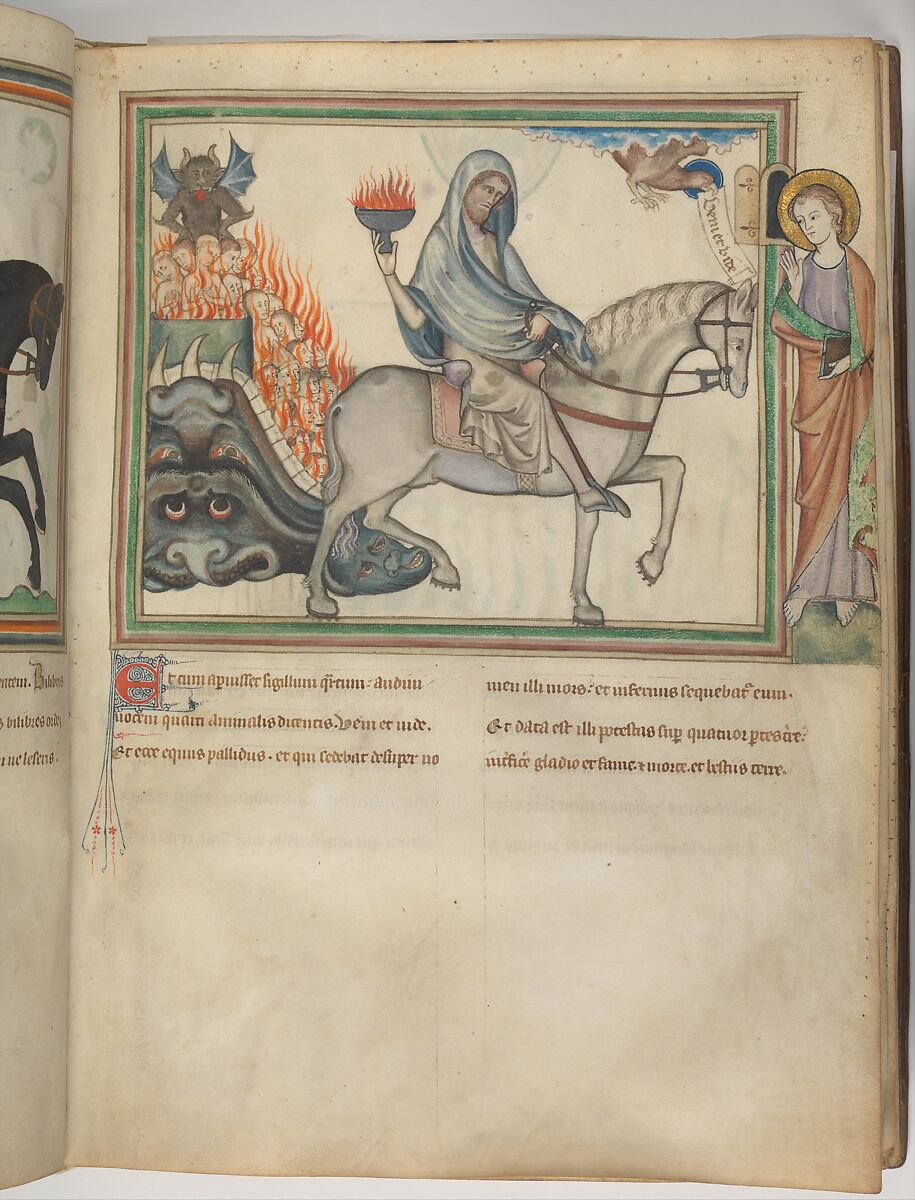 Veni et vide
Et cum aperuisset sigillum q̄rtum: audiui
uocem quarti animalis dicentis. Veni et uide.
Et ecce equus pallidus. et qui sedebat desuper no
men illi mors: et infernus sequebat᷑ eum.
Et data est illi potestas sup̲ quatuor p̲tes t̄re:
int̄fic̄e gladio et fame. ⁊ morte. et bestiis terre.